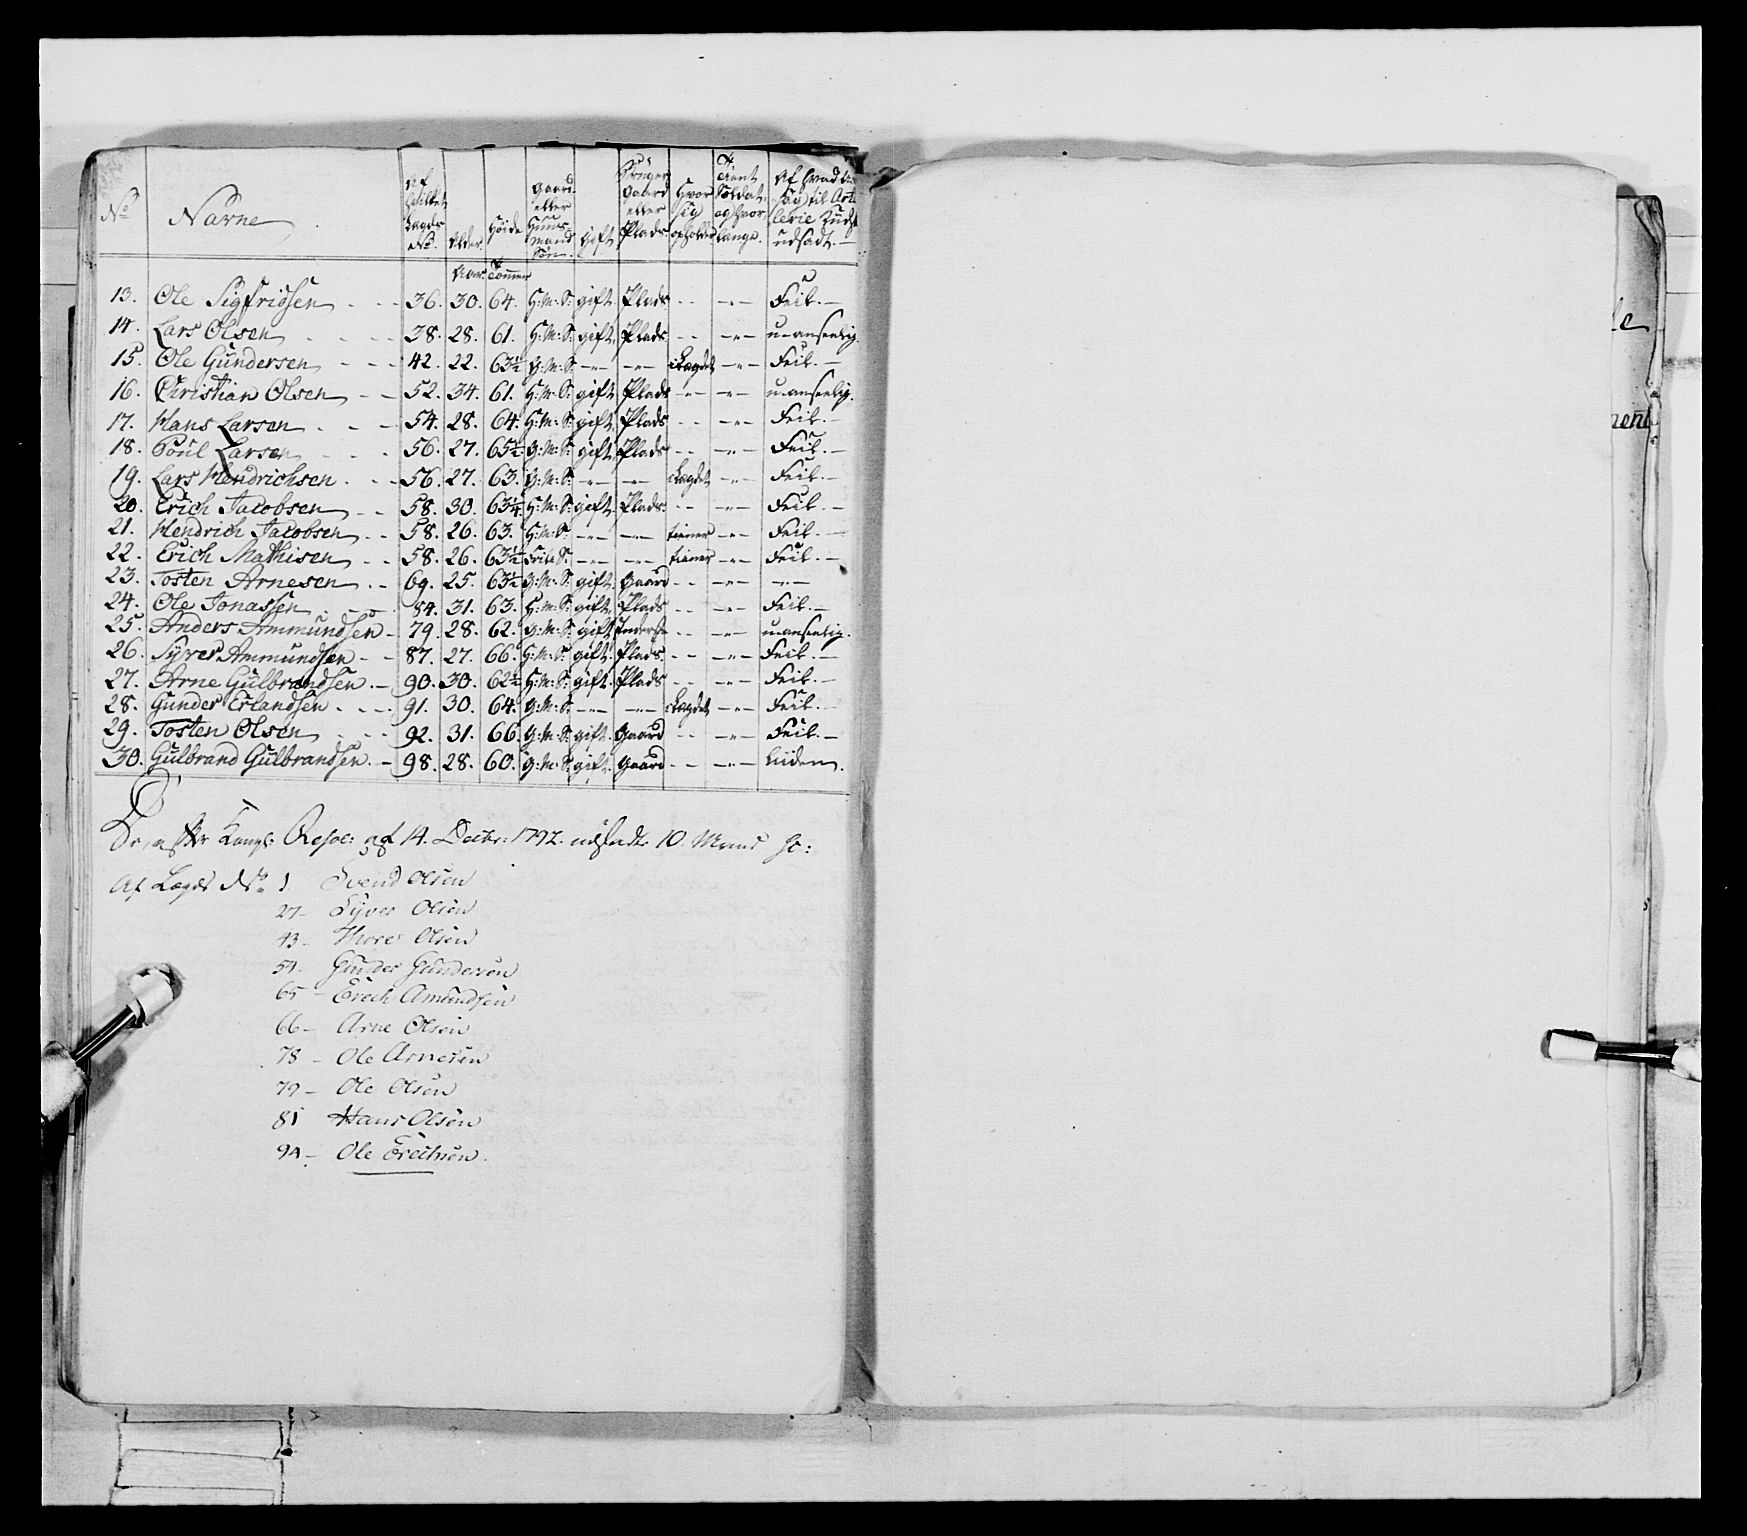 No | Navne | Af hvilket Lægds No. | Alder | Höide | Gaard eller Huusmand Sön. | Gift | Bruger Gaard eller Plads | Hvor sig opholder | Tient Soldat og hvor længe. | Af hvad til Artillerie udsadt.
Aar. Tommer
13. Ole Sigfridsen - - 36. 30. 64. H: M: S: gift. Plads - - -"- Feil. -
14. Lars Olsen - - 38. 28. 61. H: M: S: gift. Plads - - -"- u-anseelig.
15. Ole Gundersen - - - 42. 22. 63½ G: M: S: -"- -"- i Lægdet -"- Feil. -
16. Christian Olsen - - 52. 34. 61. H: M: S: gift Plads -"- -"- u-anseelig.
17. Hans Larsen - - - 54. 28. 64. H: M: S: gift. Plads - - -"- Feil. -
18. Poul Larsen - - 56. 27. 65½ G: M: S: gift. Plads - - -"- Feil. -
19. Lars Hendrichsen - - 56. 27. 63. G: M: S: -"- -"- i Lægdet -"- Feil. -
20. Erich Jacobsen - - 58. 30. 63¼ H: M: S: gift. Plads - - -"- Feil. -
21. Hendrich Jacobsen - - 58. 26. 63. H: M: S: -"- -"- tiener -"- Feil. -
22. Erich Mathisen - - 58. 26. 63½ S: -"- -"- tiener -"- Feil. -
23. Tosten Arnesen - - 69. 25. 63½ G: M: S: gift. Gaard - - -"- -"-
24. Ole Jonassen - - 84. 31. 63. H: M: S: gift. Plads - - -"- Feil. -
25. Anders Ammundsen - 79. 28. 62. G: M: S: gift - - -"- u-anseelig.
26. Syver Ammundsen - - 87. 27. 66. H: M: S: gift. Plads. - - -"- Feil. -
27. Arne Gulbrandsen. - 90. 30. 62½ H: M: S: gift. Plads - - -"- Feil. -
28. Gunder Erlandsen - - 91. 30. 64. G: M: S: -"- -"- i Lægdet -"- Feil. -
29. Tosten Olsen - - 92. 31. 66. G: M: S: gift. Gaard - - -"- Feil. -
30. Gulbrand Gulbrandsen. - 98. 28. 60. G: M: S: gift. Gaard - - -"- liiden.
De, efter Kongl: Resol: af 14. Decbr: 1792. udsadte 10. Mand
Af Lægds No 1 Svend Olsen
27 - Syver Olsen
43 - Thore Olsen
54 - Gunder Gundersen
65 - Erich Amundsen
66 - Arne Olsen
78 - Ole Arnesen
79 - Ole Olsen
81 Hans Olsen
94 - Ole Erichsen.